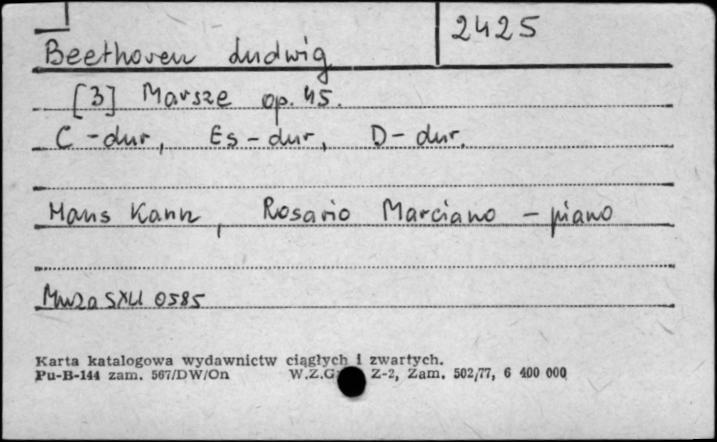 2425
Beethoven Ludwig
[3] Marsze op. 45.
C-dur, Es-dur, D-dur.
Hans Kann, Rosario Marciano - piano
Muza SXLI 0585
Karta katalogowa wydawnictw ciągłych i zwartych.
Pu-B-144 zam. 567/DW/On W.Z.G. Z-2, Zam. 502/77, 6 400 000